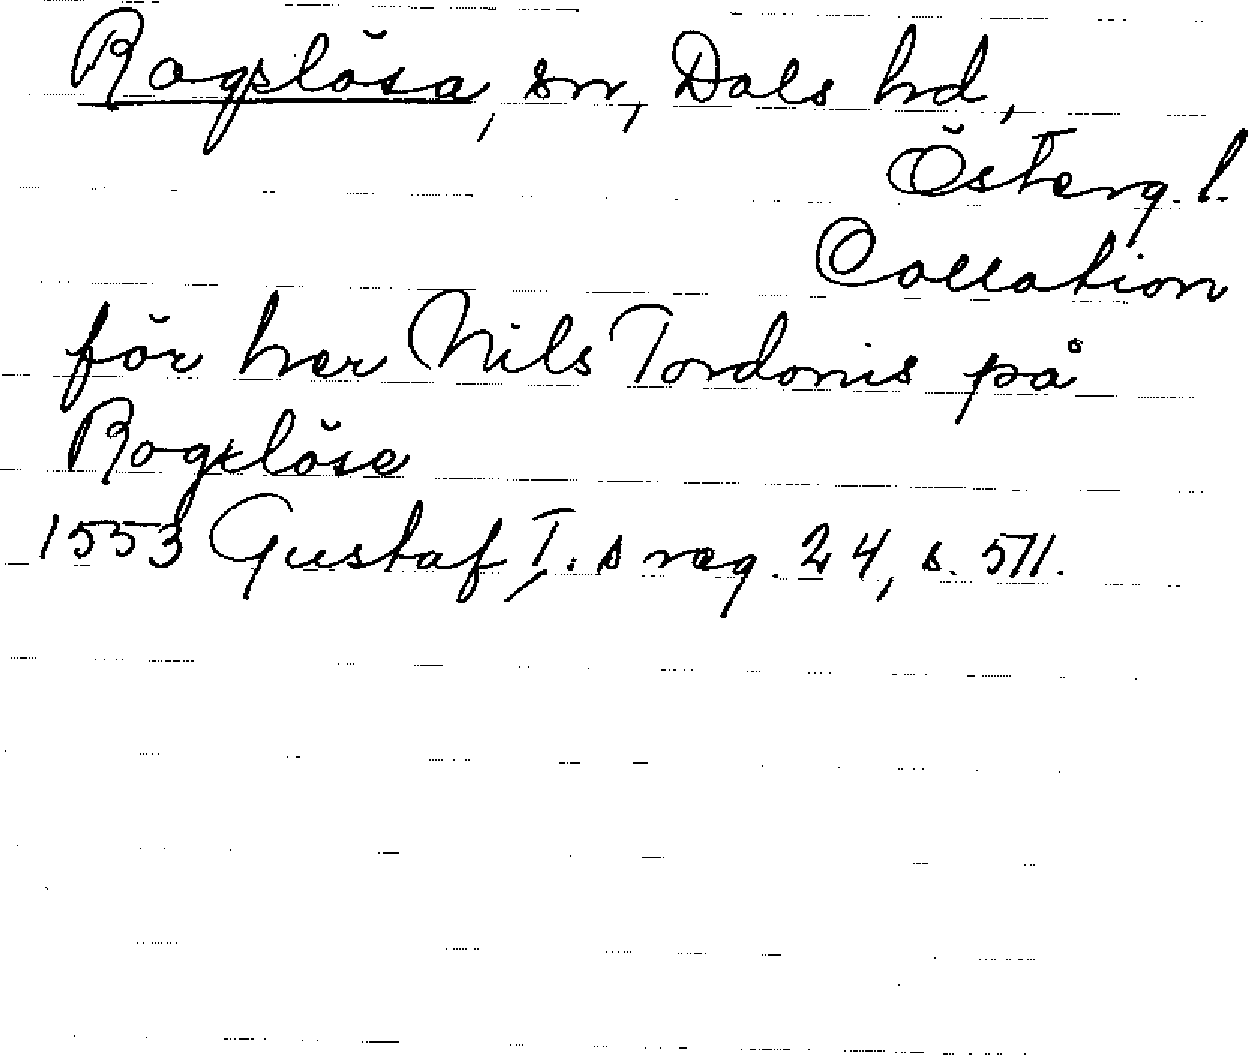 Rogslösa, sn, Dals hd,
Österg. l.
Collation
för her Nils Tordonis på
Rogslöse
1553 Gustaf I. s reg. 24, s. 511.